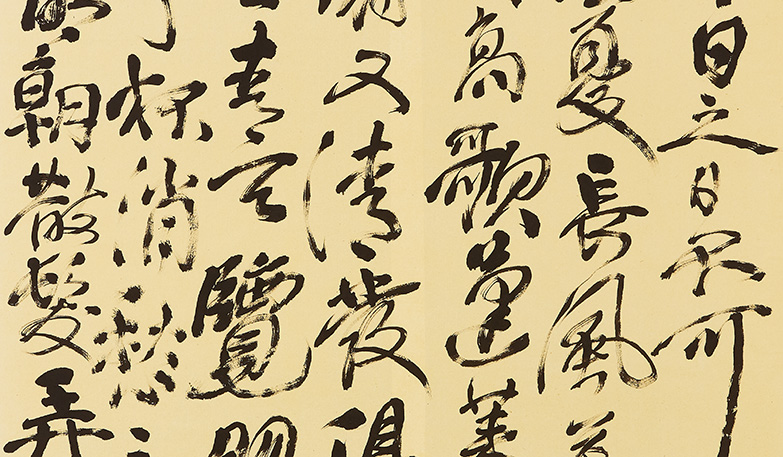 日之日不可
憂長風萬
高歌蓬萊
又清發俱
上青天覽明
杯消愁
朝散髮弄